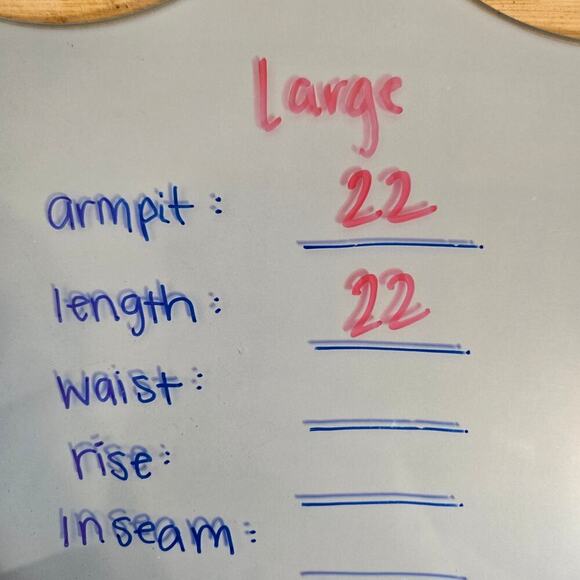 Large
armpit: 22
length: 22
waist:
rise:
inseam: